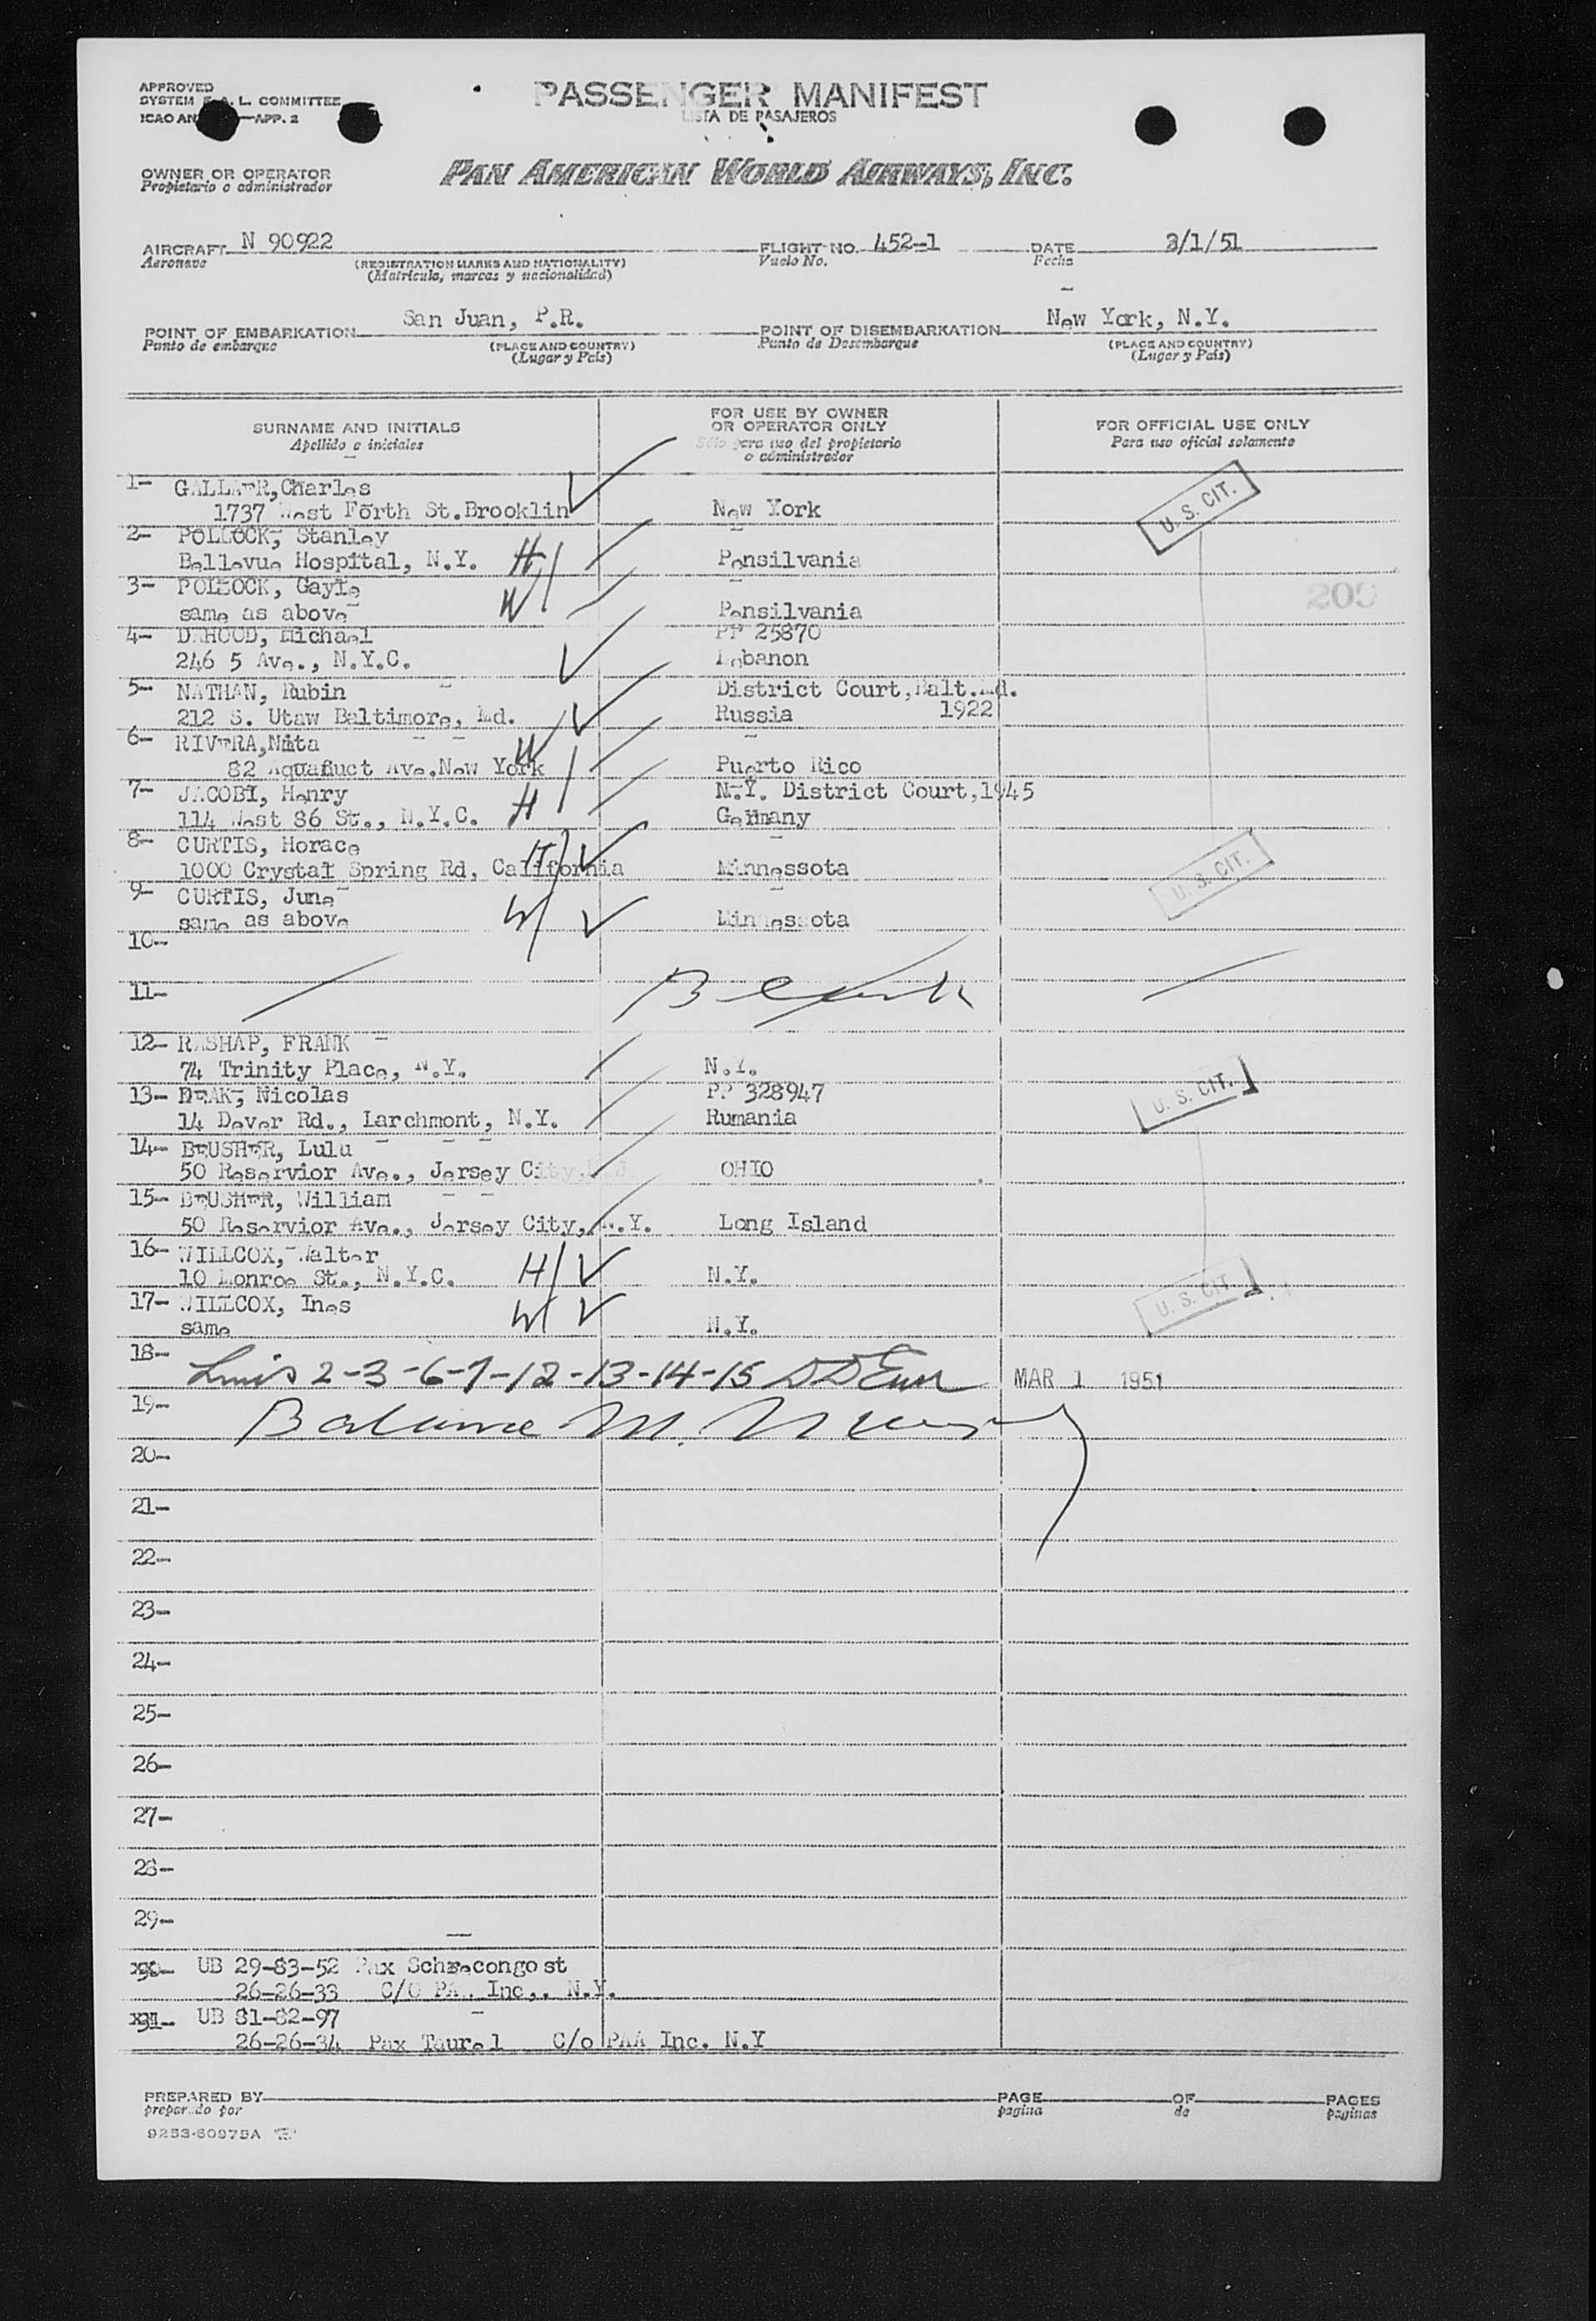 APPROVED
SYSTEM F.A.L. COMMITTEE
ICAO AN —APP. 2
PASSENGER MANIFEST
LISTA DE PASAJEROS
OWNER OR OPERATOR
Propietario o administrador
PAN AMERICAN WORLD AIRWAYS, INC.
AIRCRAFT N 90922 FLIGHT NO. 452-1 DATE 3/1/51
Aeronave (REGISTRATION MARKS AND NATIONALITY) Vuelo No. Fecha
(Matricula, marcas y nacionalidad)
POINT OF EMBARKATION San Juan, P.R. POINT OF DISEMBARKATION New York, N.Y.
Punto de embarque (PLACE AND COUNTRY) Punto de Desembarque (PLACE AND COUNTRY)
(Lugar y País) (Lugar y País)
SURNAME AND INITIALS FOR USE BY OWNER OR OPERATOR ONLY FOR OFFICIAL USE ONLY
Apellido e iniciales Sólo para uso del propietario o administrador Para uso oficial solamente
1- GALLAER, Charles
1737 West Forth St. Brooklin New York U. S. CIT.
2- POLLOCK, Stanley
Bellevue Hospital, N.Y. H Pensilvania
3- POLLOCK, Gayle 200
same as above W Pensilvania
4- DAHOOD, Michael PP 25870
246 5 Ave., N.Y.C. Lebanon
5- NATHAN, Rubin District Court, Balt. Md.
212 S. Utaw Baltimore, Md. Russia 1922
6- RIVERA, Nita W
82 Aquaduct Ave. New York Puerto Rico
7- JACOBI, Henry N.Y. District Court, 1945
114 West 86 St., N.Y.C. H Germany
8- CURTIS, Horace H
1000 Crystal Spring Rd, California Minnessota U. S. CIT.
9- CURTIS, June
same as above W Minnessota
10-
11- Blank
12- RASHAP, FRANK
74 Trinity Place, N.Y. N.Y.
13- DEAK, Nicolas PP 328947 U. S. CIT.
14 Dever Rd., Larchmont, N.Y. Rumania
14- BEUSHER, Lulu
50 Reservior Ave., Jersey City, N.J. OHIO
15- BEUSHER, William
50 Reservior Ave., Jersey City, N.Y. Long Island
16- WILLCOX, Walter
10 Monroe St., N.Y.C. H N.Y. U. S. CIT.
17- WILLCOX, Ines
same W N.Y.
18- 2-3-6-7-12-13-14-15 MAR 1 1951
19- Balance M.
20-
21-
22-
23-
24-
25-
26-
27-
28-
29-
30- UB 29-83-52 Pax
26-26-33 C/O PAA Inc,. N.Y.
31- UB 81-82-97
26-26-34 Pax Taurel C/o PAA Inc. N.Y
PREPARED BY PAGE OF PAGES
preparado por pagina de paginas
9253-60975A